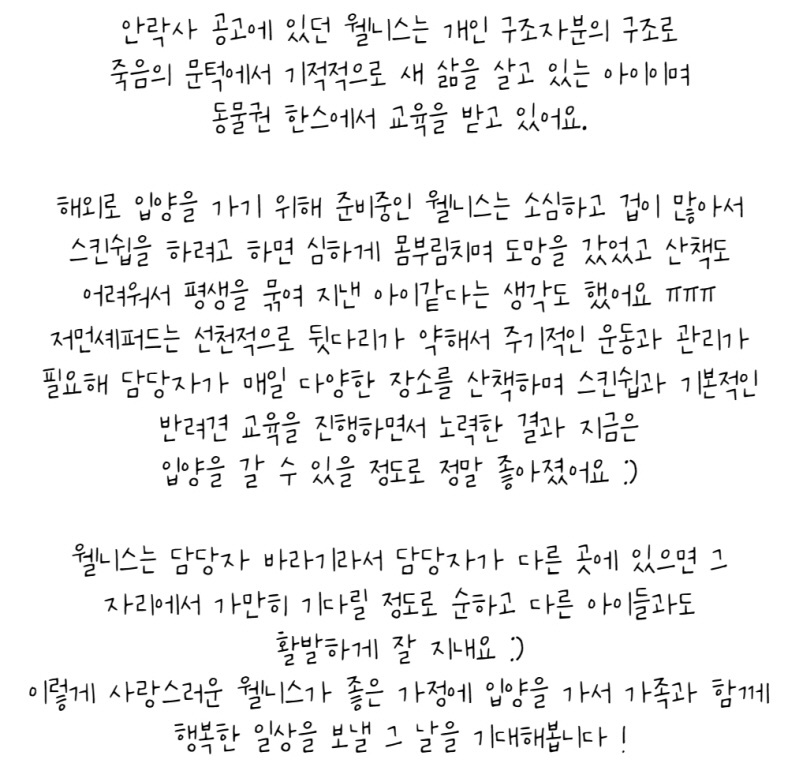 안락사 공고에 있던 웰니스는 개인 구조자분의 구조로
죽음의 문턱에서 기적적으로 새 삶을 살고 있는 아이이며
동물권 한스에서 교육을 받고 있어요.
해외로 입양을 가기 위해 준비중인 웰니스는 소심하고 겁이 많아서
스킨쉽을 하려고 하면 심하게 몸부림치며 도망을 갔었고 산책도
어려워서 평생을 묶여 지낸 아이같다는 생각도 했어요 ㅠㅠㅠ
저먼셰퍼드는 선천적으로 뒷다리가 약해서 주기적인 운동과 관리가
필요해 담당자가 매일 다양한 장소를 산책하며 스킨쉽과 기본적인
반려견 교육을 진행하면서 노력한 결과 지금은
입양을 갈 수 있을 정도로 정말 좋아졌어요 :)
웰니스는 담당자 바라기라서 담당자가 다른 곳에 있으면 그
자리에서 가만히 기다릴 정도로 순하고 다른 아이들과도
활발하게 잘 지내요 :)
이렇게 사랑스러운 웰니스가 좋은 가정에 입양을 가서 가족과 함께
행복한 일상을 보낼 그 날을 기대해봅니다 !